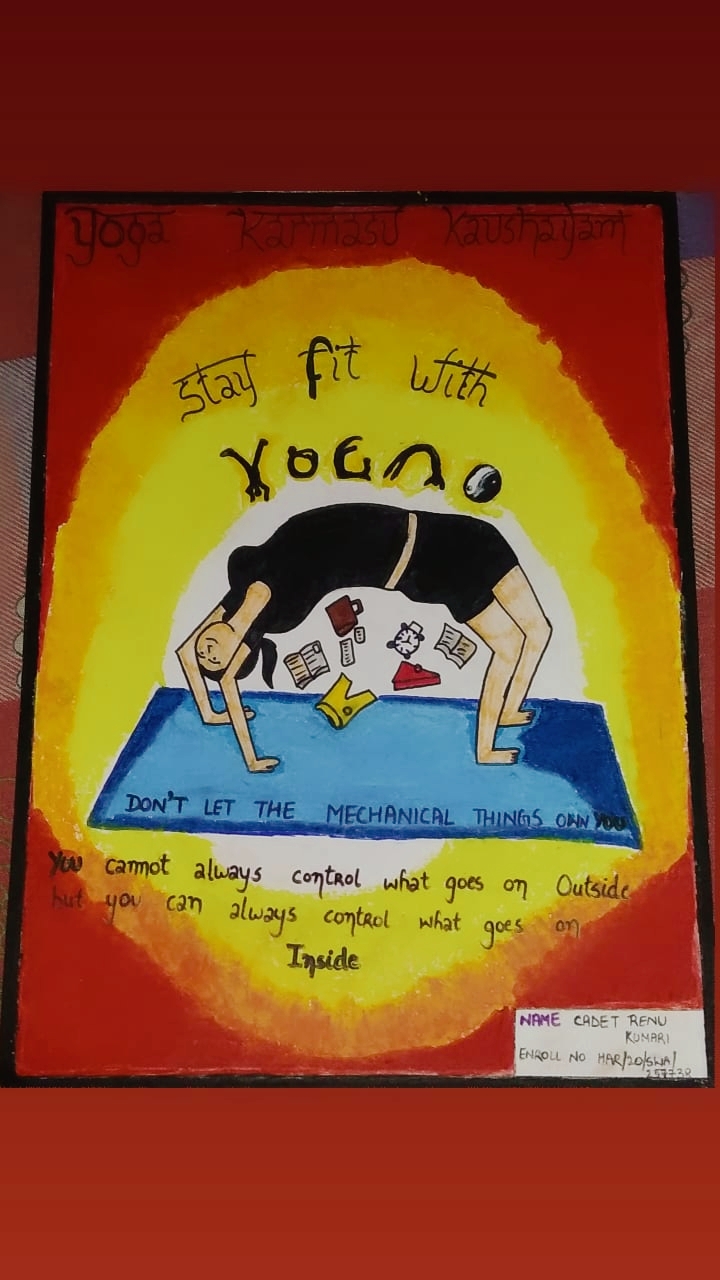 Yoga Karmasu Kaushalyam
Stay fit with
YOGA
DON'T LET THE MECHANICAL THINGS OWN YOU
You cannot always control what goes on Outside
but you can always control what goes on
Inside
NAME CADET RENU
KUMARI
ENROLL NO HAR/20/SWA/
257738